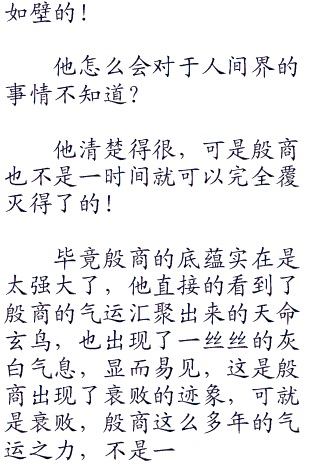 如壁的！
他怎么会对于人间界的
事情不知道？
他清楚得很，可是殷商
也不是一时间就可以完全覆
灭得了的！
毕竟殷商的底蕴实在是
太强大了，他直接的看到了
殷商的气运汇聚出来的天命
玄鸟，也出现了一丝丝的灰
白气息，显而易见，这是殷
商出现了衰败的迹象，可就
是衰败，殷商这么多年的气
运之力，不是一